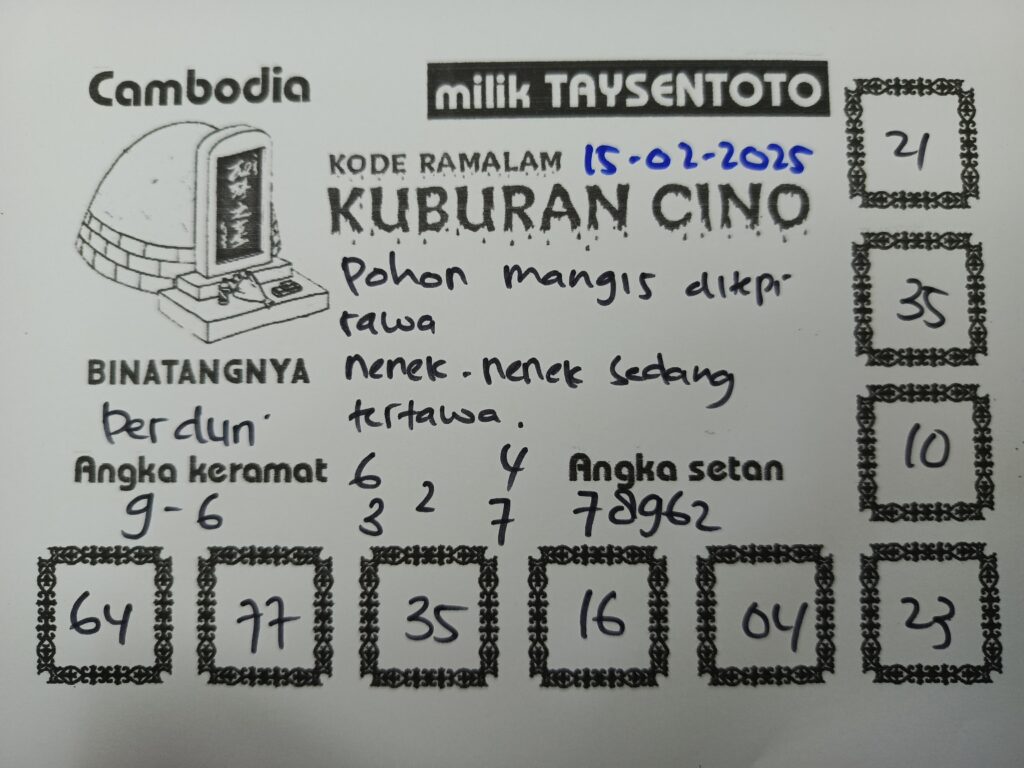 Cambodia
milik TAYSENTOTO
KODE RAMALAM 15-02-2025
KUBURAN CINO
Pohon mangis ditepi
rawa
nenek-nenek sedang
tertawa.
BINATANGNYA
Angka keramat
9-6
6 4
3 2 7
Angka setan
78962
21
35
10
64 77 35 16 04 23